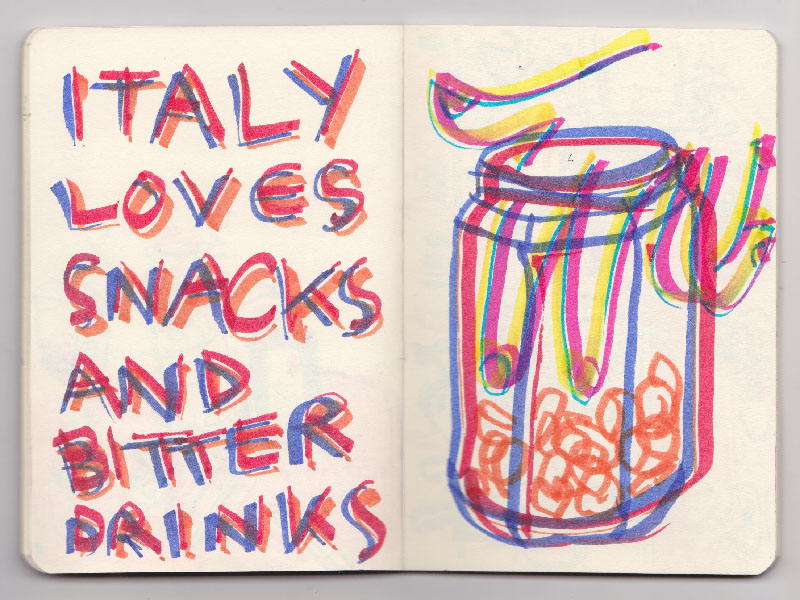 ITALY
LOVES
SNACKS
AND
BITTER
DRINKS